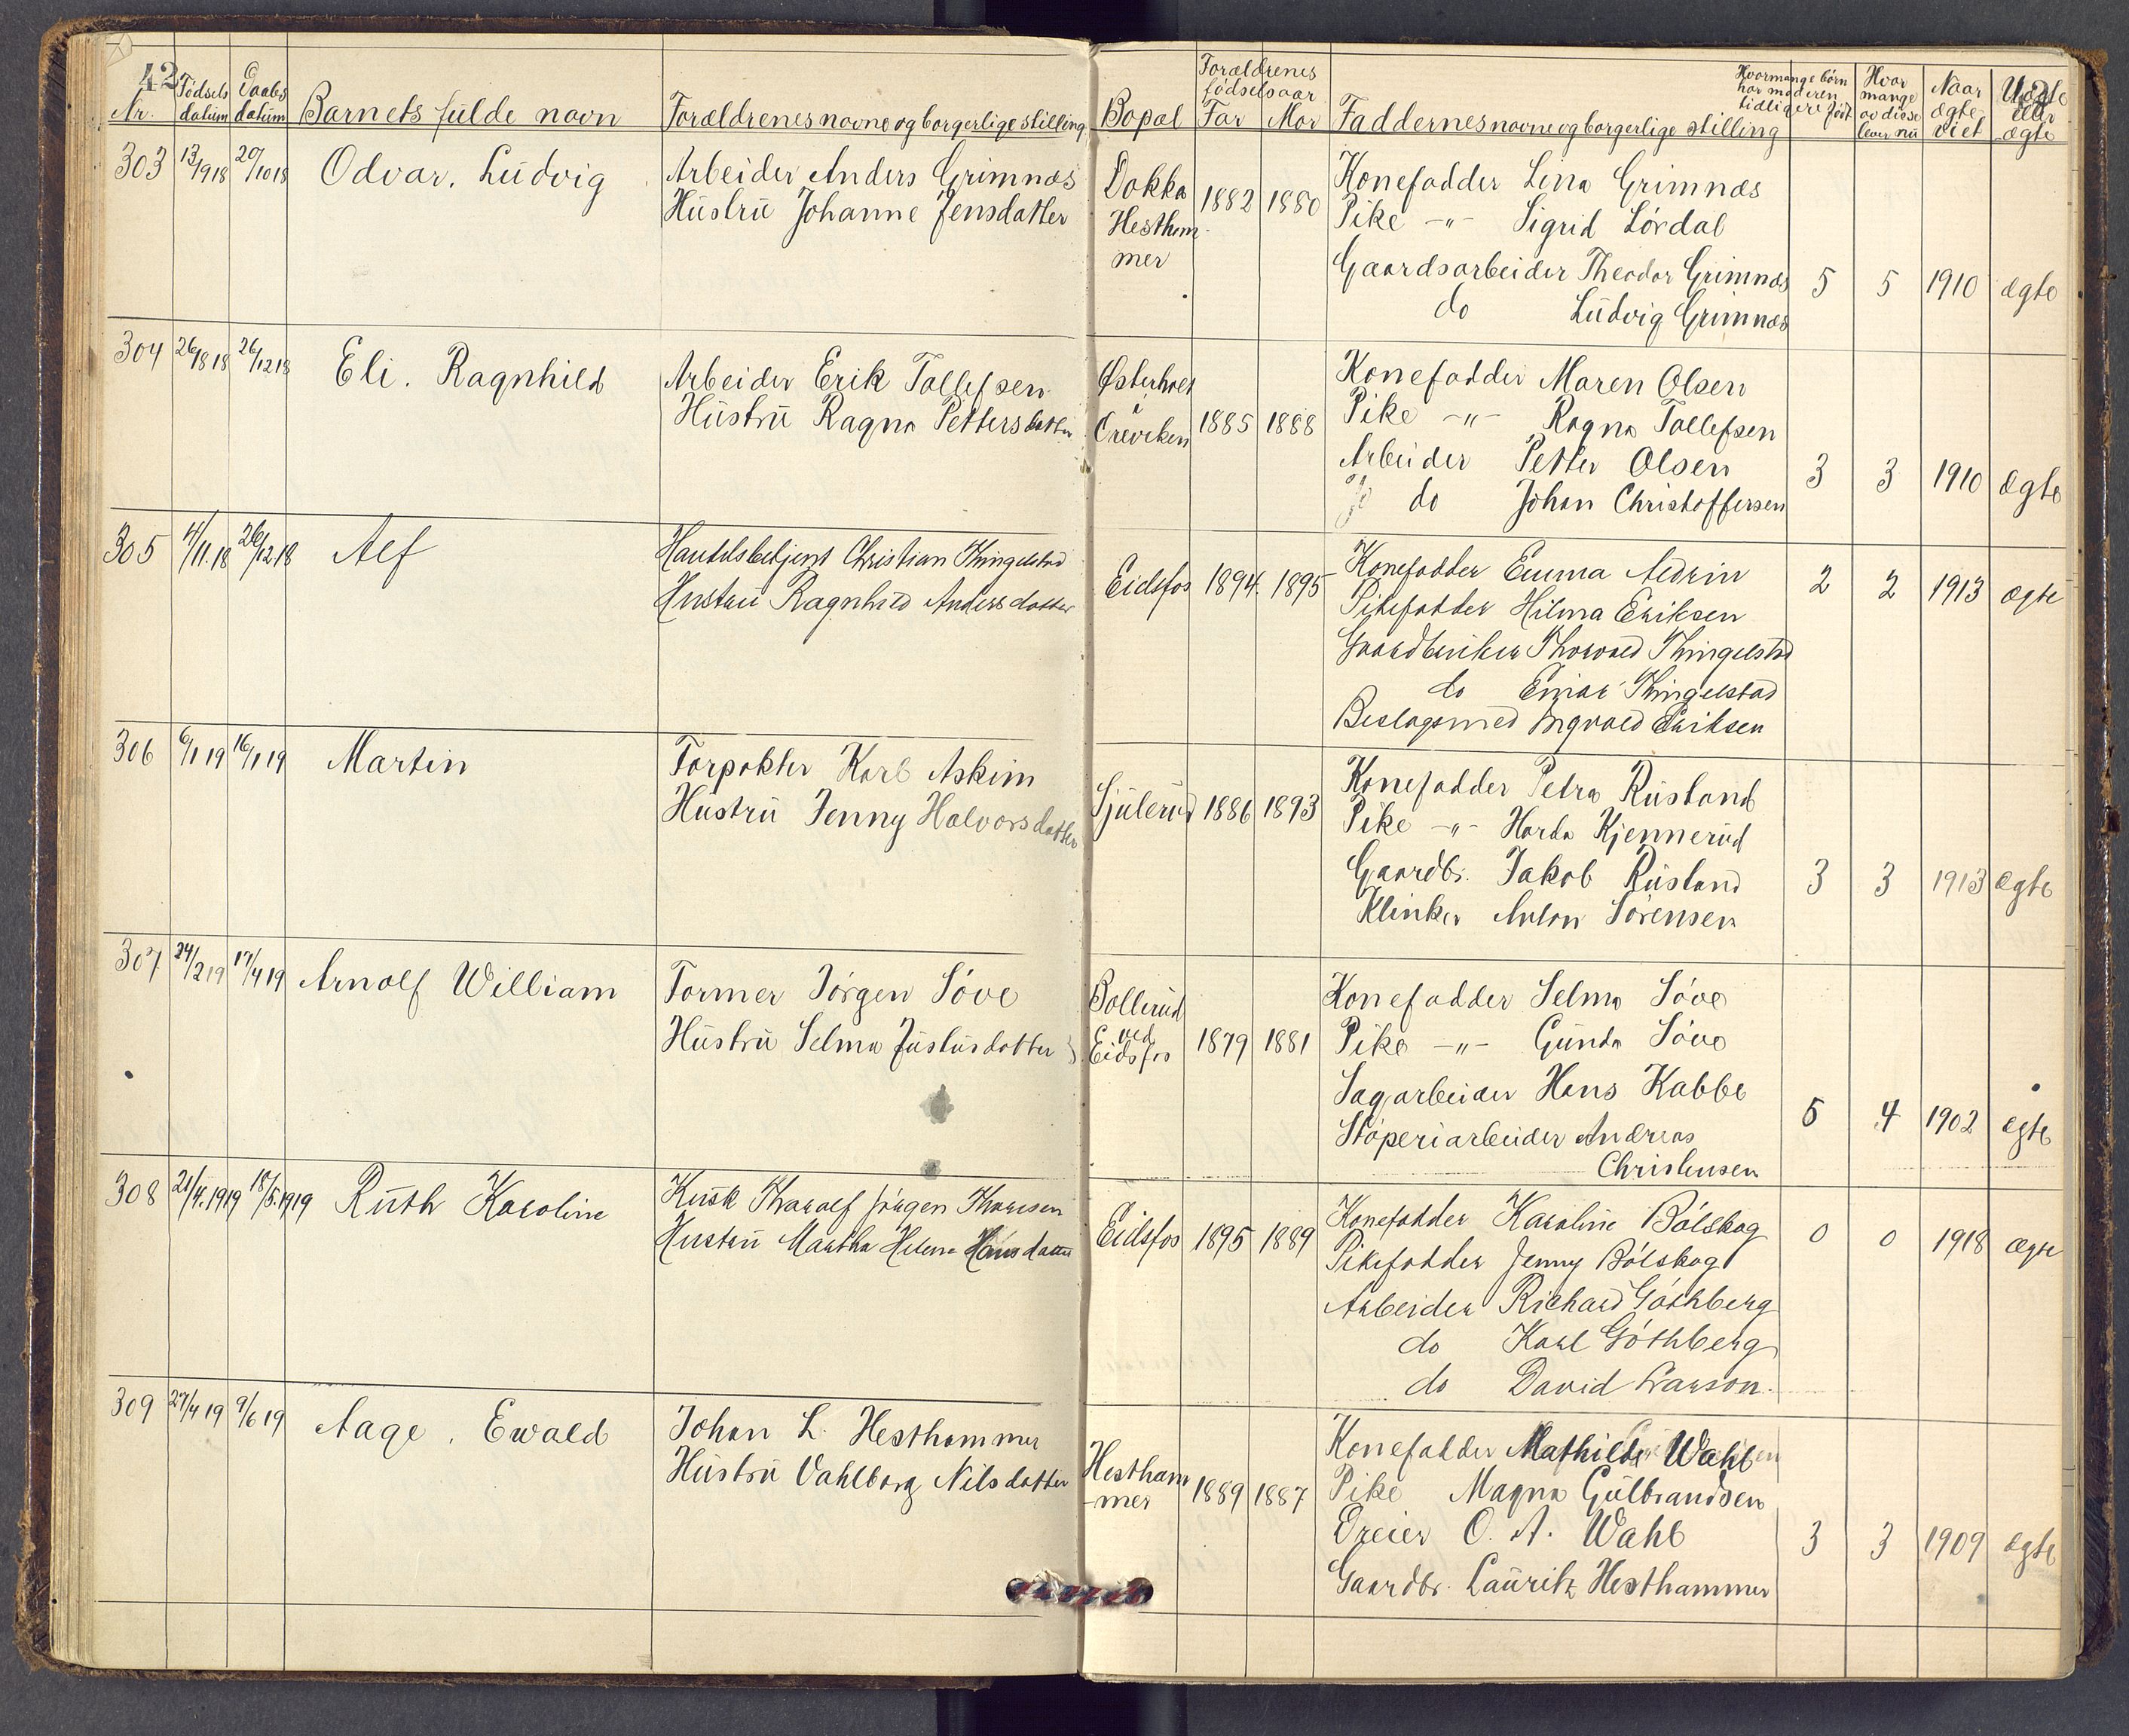 42
Nr. Fødsels datum Daabs datum Barnets fulde navn Forældrenes navne og borgerlige stilling Bopæl Forældrenes fødselsaar Far Mor Faddernes navne og borgerlige stilling Hvormange børn har moderen tidligere født Hvor mange av disse lever nu Naar ægte viet Uægte eller ægte
303 13/9 18 20/10 18 Odvar. Ludvig
Arbeider Anders Grimnæs
Hustru Johanne Jensdatter
Dokka
Hestham-
mer
1882 1880
Konefadder Lina Grimnæs
Pike -"- Sigrid Lördal
Gaardsarbeider Theodor Grimnæs
do Ludvig Grimnæs
5 5 1910 ægte
304 26/8 18 26/12 18 Eli. Ragnhild
Arbeider Erik Tollefsen
Hustru Ragna Pettersdatter
Østerholt
i
1885 1888
Konefadder Maren Olsen
Pike -"- Ragna Tollefsen
Arbeider Petter Olsen
do Johan Christoffersen
3 3 1910 ægte
305 4/11.18 26/12 18 Alf
Handelsbetjent Christian Thingelstad
Hustru Ragnhild Andersdatter
Eidsfos 1894. 1895
Konefadder Emma Aldrin
Pikefadder Hilma Eriksen
Gaardbruker Thorvald Thingelstad
do Einar Thingelstad
Beslagsmed Ingvald Eriksen
2 2 1913 ægte
306 6/1 19 16/1 19 Martin
Forpakter Karl Askim
Hustru Jenny Halvorsdatter
Sjulerud 1886 1893
Konefadder Petra Rusland
Pike -"- Harda Kjennerud
Gaardbr. Jakob Rusland
Klinker Anton Sörensen
3 3 1913 ægte
307 24/2 19 17/4 19 Arnolf William
Former Jörgen Söve
Hustru Selma Justusdatter
Bollerud
ved
Eidsfos
1879 1881
Konefadder Selma Söve
Pike -"- Gunda Söve
Sagarbeider Hans Kabbe
Stöperiarbeider Andreas
Christensen
5 4 1902 ægte
308 21/4.1919 18/5.1919 Ruth Karoline
Kusk Tharalf Jörgen Thoresen
Hustru Martha Helene Hansdatter
Eidsfos 1895 1889
Konefadder Karoline Bölskog
Pikefadder Jenny Bölskog
Arbeider Richard Göthberg
do Karl Göthberg
do David Larson.
0 0 1918 ægte
309 27/4 19 9/6 19 Aage. Ewald
Johan L. Hesthammer
Hustru Vahlborg Nilsdatter
Hestham
-mer
1889 1887
Konefadder Mathilde Wahl
Pike Magna Gulbrandsen
Dreier O. A. Wahl
Gaardbr. Lauritz Hesthammer
3 3 1909 ægte